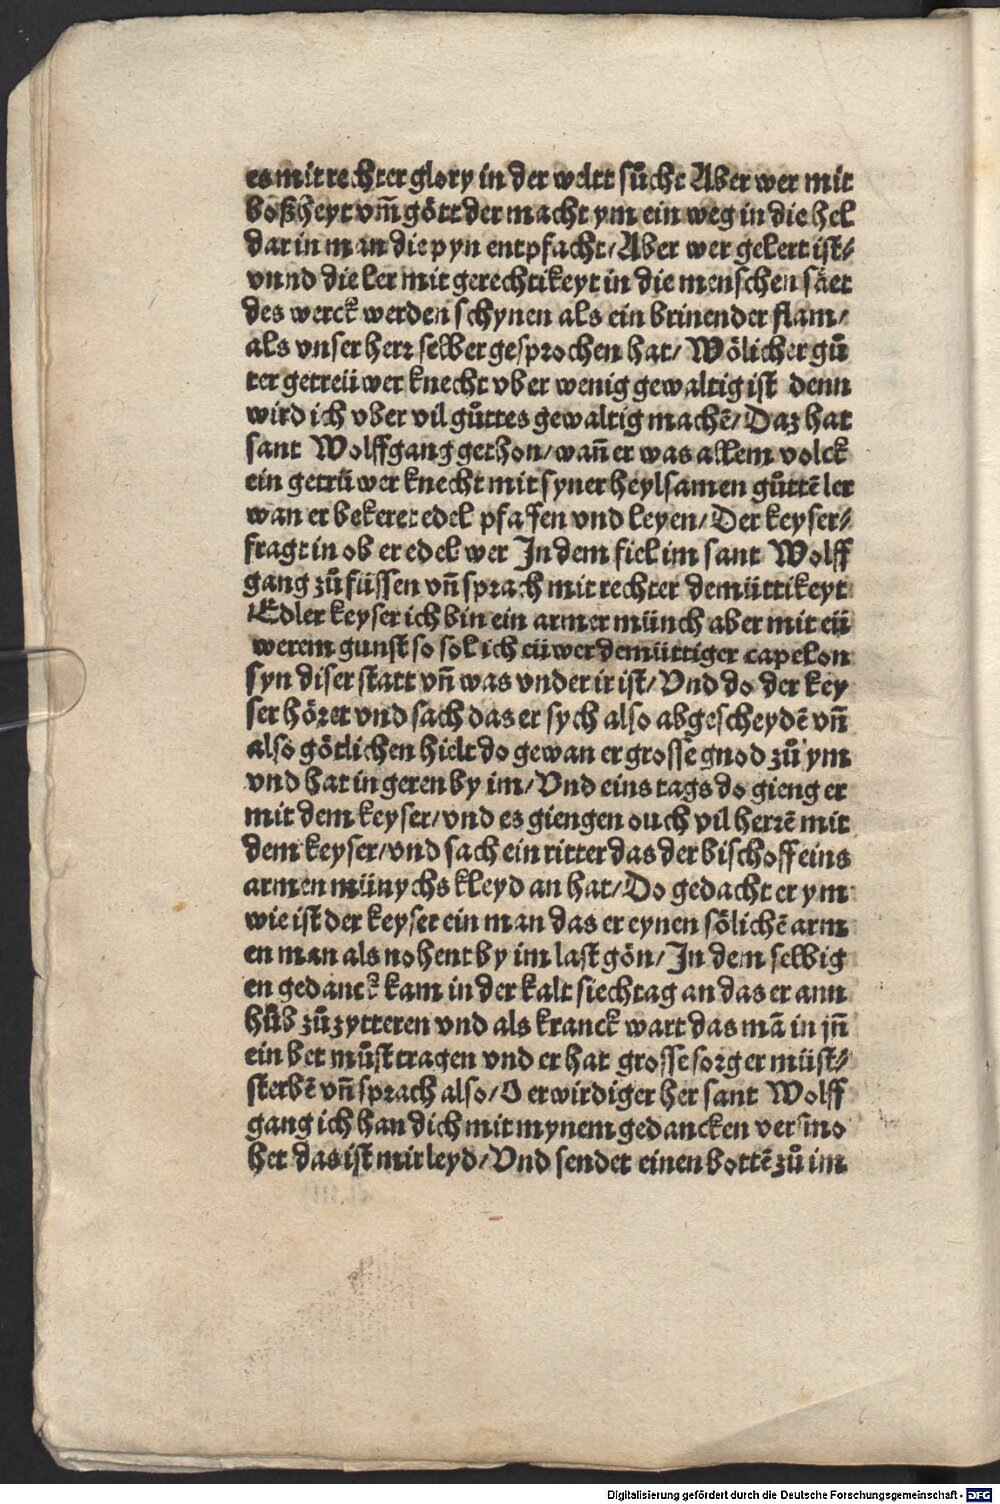 es mit rechter glory in der weltt sůcht Aber wer mit
boßheyt vm̄ gött der macht ym ein weg in die hel
dar in man die pyn entpfacht/ Aber wer gelert ist⸗
vnnd die ler mit gerechtikeyt in die menschen säet
des werck werden schynen als ein brinender flam/
als vnser herr selber gesprochen hat/ Wölicher gů
ter getreüwer knecht vber wenig gewaltig ist denn
wird ich vber vil gůttes gewaltig machē/ Daz hat
sant Wolffgang gethon/ wan̄ er was allem volck
ein getrüwer knecht mit syner heylsamen gůttē ler
wan er bekeret edel pfaffen vnd leyen/ Der keyser⸗
fragt in ob er edel wer In dem fiel im sant Wolff
gang zů füssen vn̄ sprach mit rechter demüttikeyt
Edler keyser ich bin ein armer münch aber mit eü
werem gunst so sol ich eüwer demüttiger capelon
syn diser statt vn̄ was vnder ir ist/ Vnd do der key
ser höret vnd sach das er sych also abgescheydē vn̄
also götlichen hielt do gewan er grosse gnod zů ym
vnd hat in geren by im/ Vnd eins tags do gieng er
mit dem keyser/ vnd es giengen ouch vil herrē mit
dem keyser/ vnd sach ein ritter das der bischoff eins
armen münychs kleyd an hat/ Do gedacht er ym
wie ist der keyser ein man das er eynen sölichē arm
en man als nohent by im last gön/ In dem selbig
en gedanck kam in der kalt siechtag an das er ann
hůb zů zytteren vnd als kranck wart das mā in jn̄
ein bet můst tragen vnd er hat grosse sorg er müst⸗
sterbē vn̄ sprach also/ O erwirdiger her sant Wolff
gang ich han dich mit mynem gedancken versmo
het das ist mir leyd/ Vnd sendet einen bottē zů im
Digitalisierung gefördert durch die Deutsche Forschungsgemeinschaft - DFG